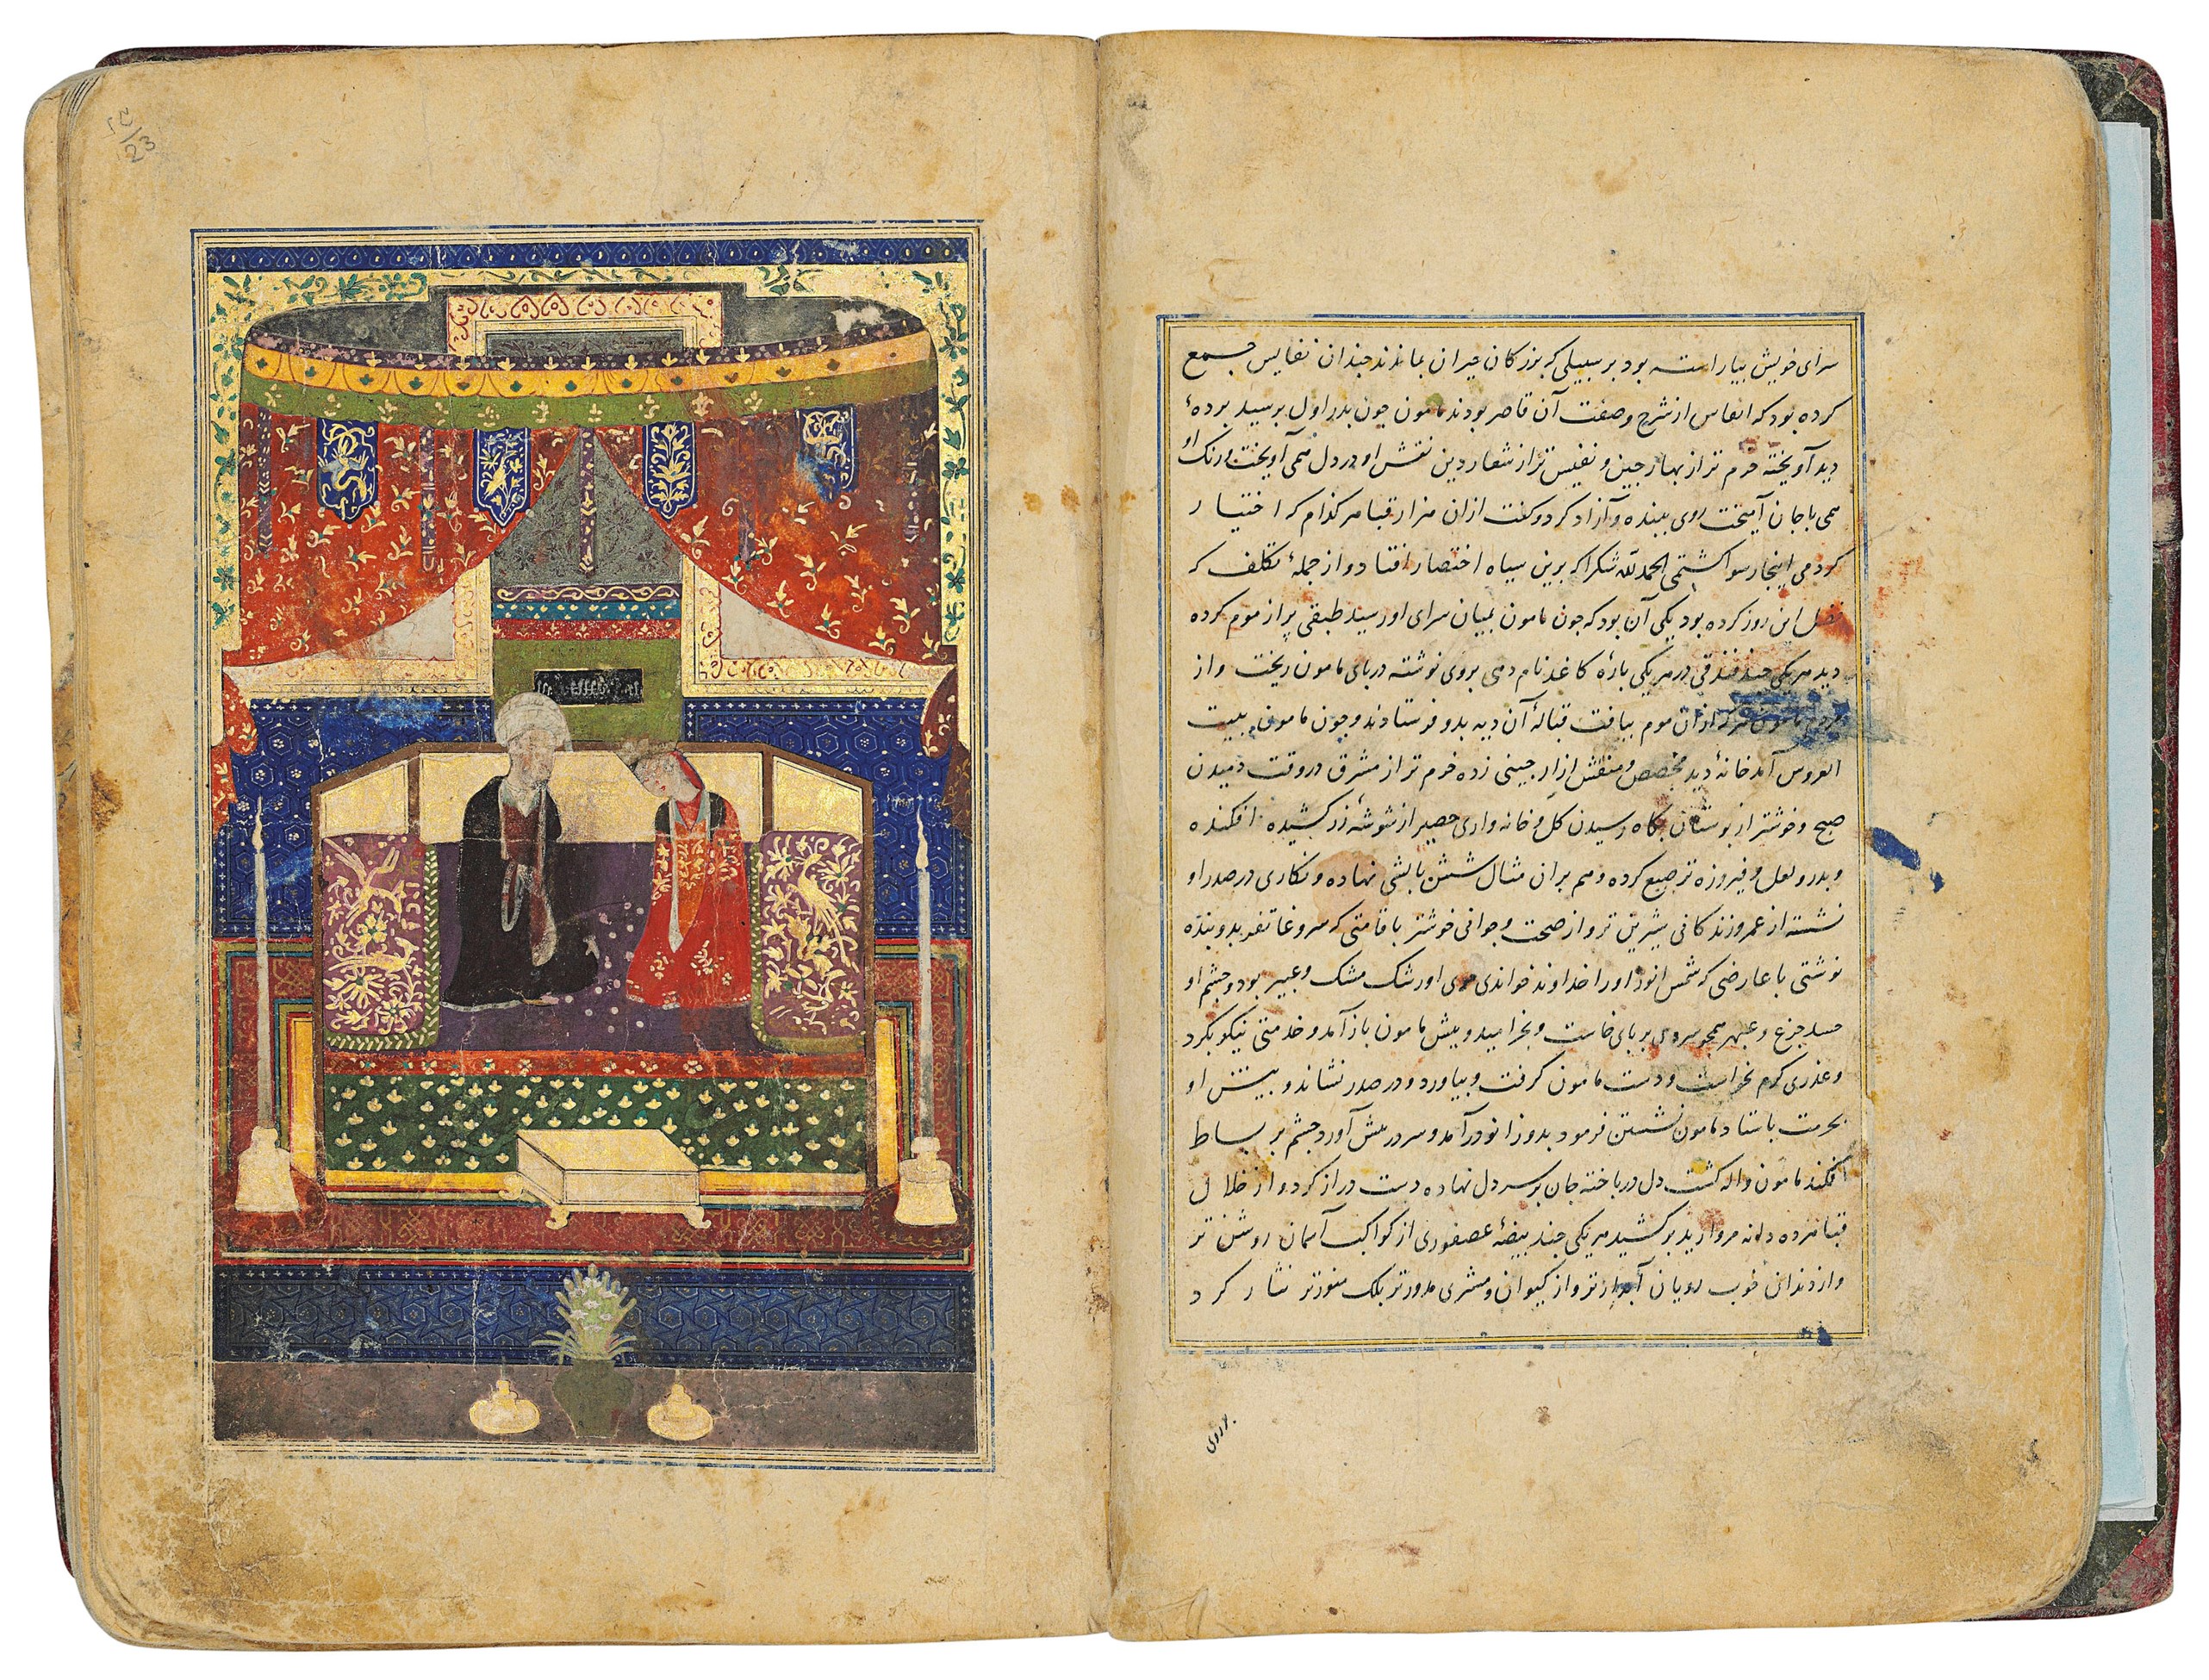 سرای خویش بیاراسته بود بر سبیلی که بزرکان حیران بماندند چندان نفایس جمع
کرده بود که انفاس از شرح و صفت آن قاصر بودند مامون چون بدر اول برسید بردهٔ
دید آویخته خرم تر از بهار چین و نفیس تر از شعار دین نقش او در دل همی آویخت و رنک او
همی با جان آمیخت روی ببنده و آزاد کرد و کفت ازان هزار قبا هر کذام که اختیار
کردمی اینجا رسوا کشتمی الحمدلله شکرا که برین سیاه اختصار افتاد و از جملهٔ تکلف که
فضل این روز کرده بود یکی آن بود که چون مامون بمیان سرای او رسید طبقی پر از موم کرده
دید هر یکی چند فندقی در هر یکی بارهٔ کاغذ نام دهی بروی نوشته در بای مامون ریخت و از
مردم مامون هر که ازان موم بیافت قبالهٔ آن دیه بدو فرستادند و چون مامون ببیت
العروس آمد خانهٔ دید مجصص و منقش ازار چینی زده خرم تر از مشرق در وقت دمیدن
صبح و خوشتر از بوستان بکاه رسیدن کل و خانه واری حصیر از شوشهٔ زر کشیده افکنده
و بدر و لعل و فیروزه ترصیع کرده و هم بران مثال شش بالش نهاده و نکاری در صدر او
نشسته از عمر و زندکانی شیرین تر و از صحت و جوانی خوشتر با قامتی که سرو غاتفر بدو بنده
نوشتی با عارضی که شمس انور او را خداوند خواندی موی او رشک مشک و عبیر بود و چشم او
حسد جزع و عبهر همچو سروی بر بای خاست و بخرامید و بیش مامون باز آمد و خدمتی نیکو بکرد
و عذری کرم بخواست و دست مامون کرفت و بیاورد و در صدر نشاند و بیش او
بحرمت باستاد مامون نشستن فرمود بدو زانو درآمد و سر در بیش آورد و چشم بر بساط
افکند مامون واله کشت دل در باخته جان بر سر دل نهاده دست دراز کرد و از خلال
قبا هژده دانه مروارید بر کشید هر یکی چند بیضهٔ عصفوری از کواکب آسمان روشن تر
و از دندان خوب رویان آبدارتر و از کیوان و مشتری مدورتر بلک منورتر نثار کرد
بر روی
23